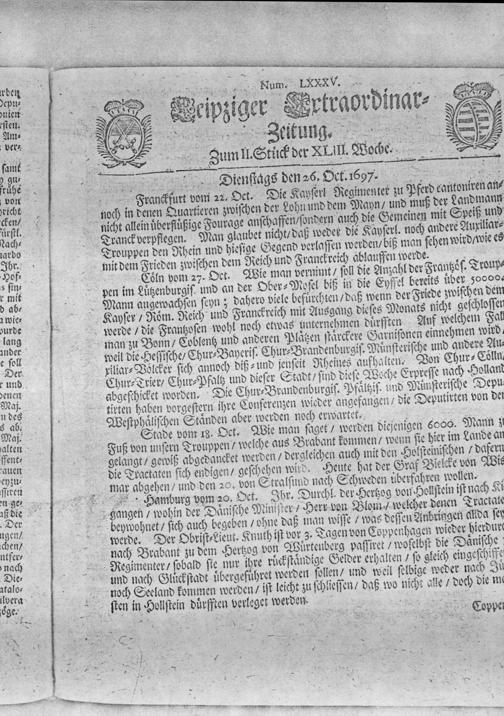 Num. LXXXV.
Leipziger Extraordinar-
Zeitung.
Zum II. Stück der XLIII. Woche.
Dienstags den 26. Oct. 1697.
Franckfurt vom 22. Oct. Die Kayserl. Regimenter zu Pferd cantoniren an-
noch in denen Quartieren zwischen der Lohn und dem Mayn/ und muß der Landmann
nicht allein überflüßige Fourage anschaffen/ sondern auch die Gemeinen mit Speiß und
Tranck verpflegen. Man glaubet nicht/ daß weder die Kayserl. noch andere Auxiliar-
Trouppen den Rhein und hiesige Gegend verlassen werden/ biß man sehen wird/ wie es
mit dem Frieden zwischen dem Reich und Franckreich ablauffen werde.
Cöln vom 27. Oct. Wie man vernimt/ soll die Anzahl der Frantzös. Troup-
pen im Lützenburgis. und an der Ober-Mosel biß in die Eyffel bereits über 50000.
Mann angewachsen seyn; dahero viele befürchten/ daß wenn der Friede zwischen dem
Kayser/ Röm. Reich und Franckreich mit Ausgang dieses Monats nicht geschlossen
werde/ die Frantzosen wohl noch etwas unternehmen dürfften. Auf welchem Fall
man zu Bonn/ Coblentz und anderen Plätzen stärckere Garnisonen einnehmen wird/
weil die Hessische/ Chur-Bayeris. Chur-Brandenburgis. Münsterische und andere Au-
xiliar-Völcker sich annoch diß- und jenseit Rheines aufhalten. Von Chur-Cölln/
Chur-Trier/ Chur-Pfaltz und dieser Stadt/ sind diese Woche Expresse nach Holland
abgeschicket worden. Die Chur-Brandenburgis. Pfältzis. und Münsterische Depu-
tirten haben vorgestern ihre Conferenzen wieder angefangen/ die Deputirten von den
Westphälischen Ständen aber werden noch erwartet.
Stade vom 18. Oct. Wie man saget/ werden diejenigen 6000. Mann zu
Fuß von unsern Trouppen/ welche aus Brabant kommen/ wenn sie hier im Lande an-
gelangt/ gewiß abgedancket werden/ dergleichen auch mit den Holsteinischen/ dafern
die Tractaten sich endigen/ geschehen wird. Heute hat der Graf Bielcke von Wis-
mar abgehen/ und den 20. von Stralsund nach Schweden überfahren wollen.
Hamburg vom 20. Oct. Ihr. Durchl. der Hertzog von Hollstein ist nach
gangen/ wohin der Dänische Minister/ Herr von Blom/ welcher denen Tractaten
beywohnet/ sich auch begeben/ ohne daß man wisse/ was dessen Anbringen allda sey
werde. Der Obrist-Lieut. Knuth ist vor 3. Tagen von Coppenhagen wieder hierdurch
nach Brabant zu dem Hertzog von Würtenberg passiret/ woselbst die Dänische
Regimenter/ sobald sie nur ihre rückständige Gelder erhalten/ so gleich eingeschiffet
und nach Glückstadt übergeführet werden sollen/ und weil selbige weder nach
noch Seeland kommen werden/ ist leicht zu schliessen/ daß wo nicht alle/ doch die mei-
sten in Hollstein dürfften verleget werden.